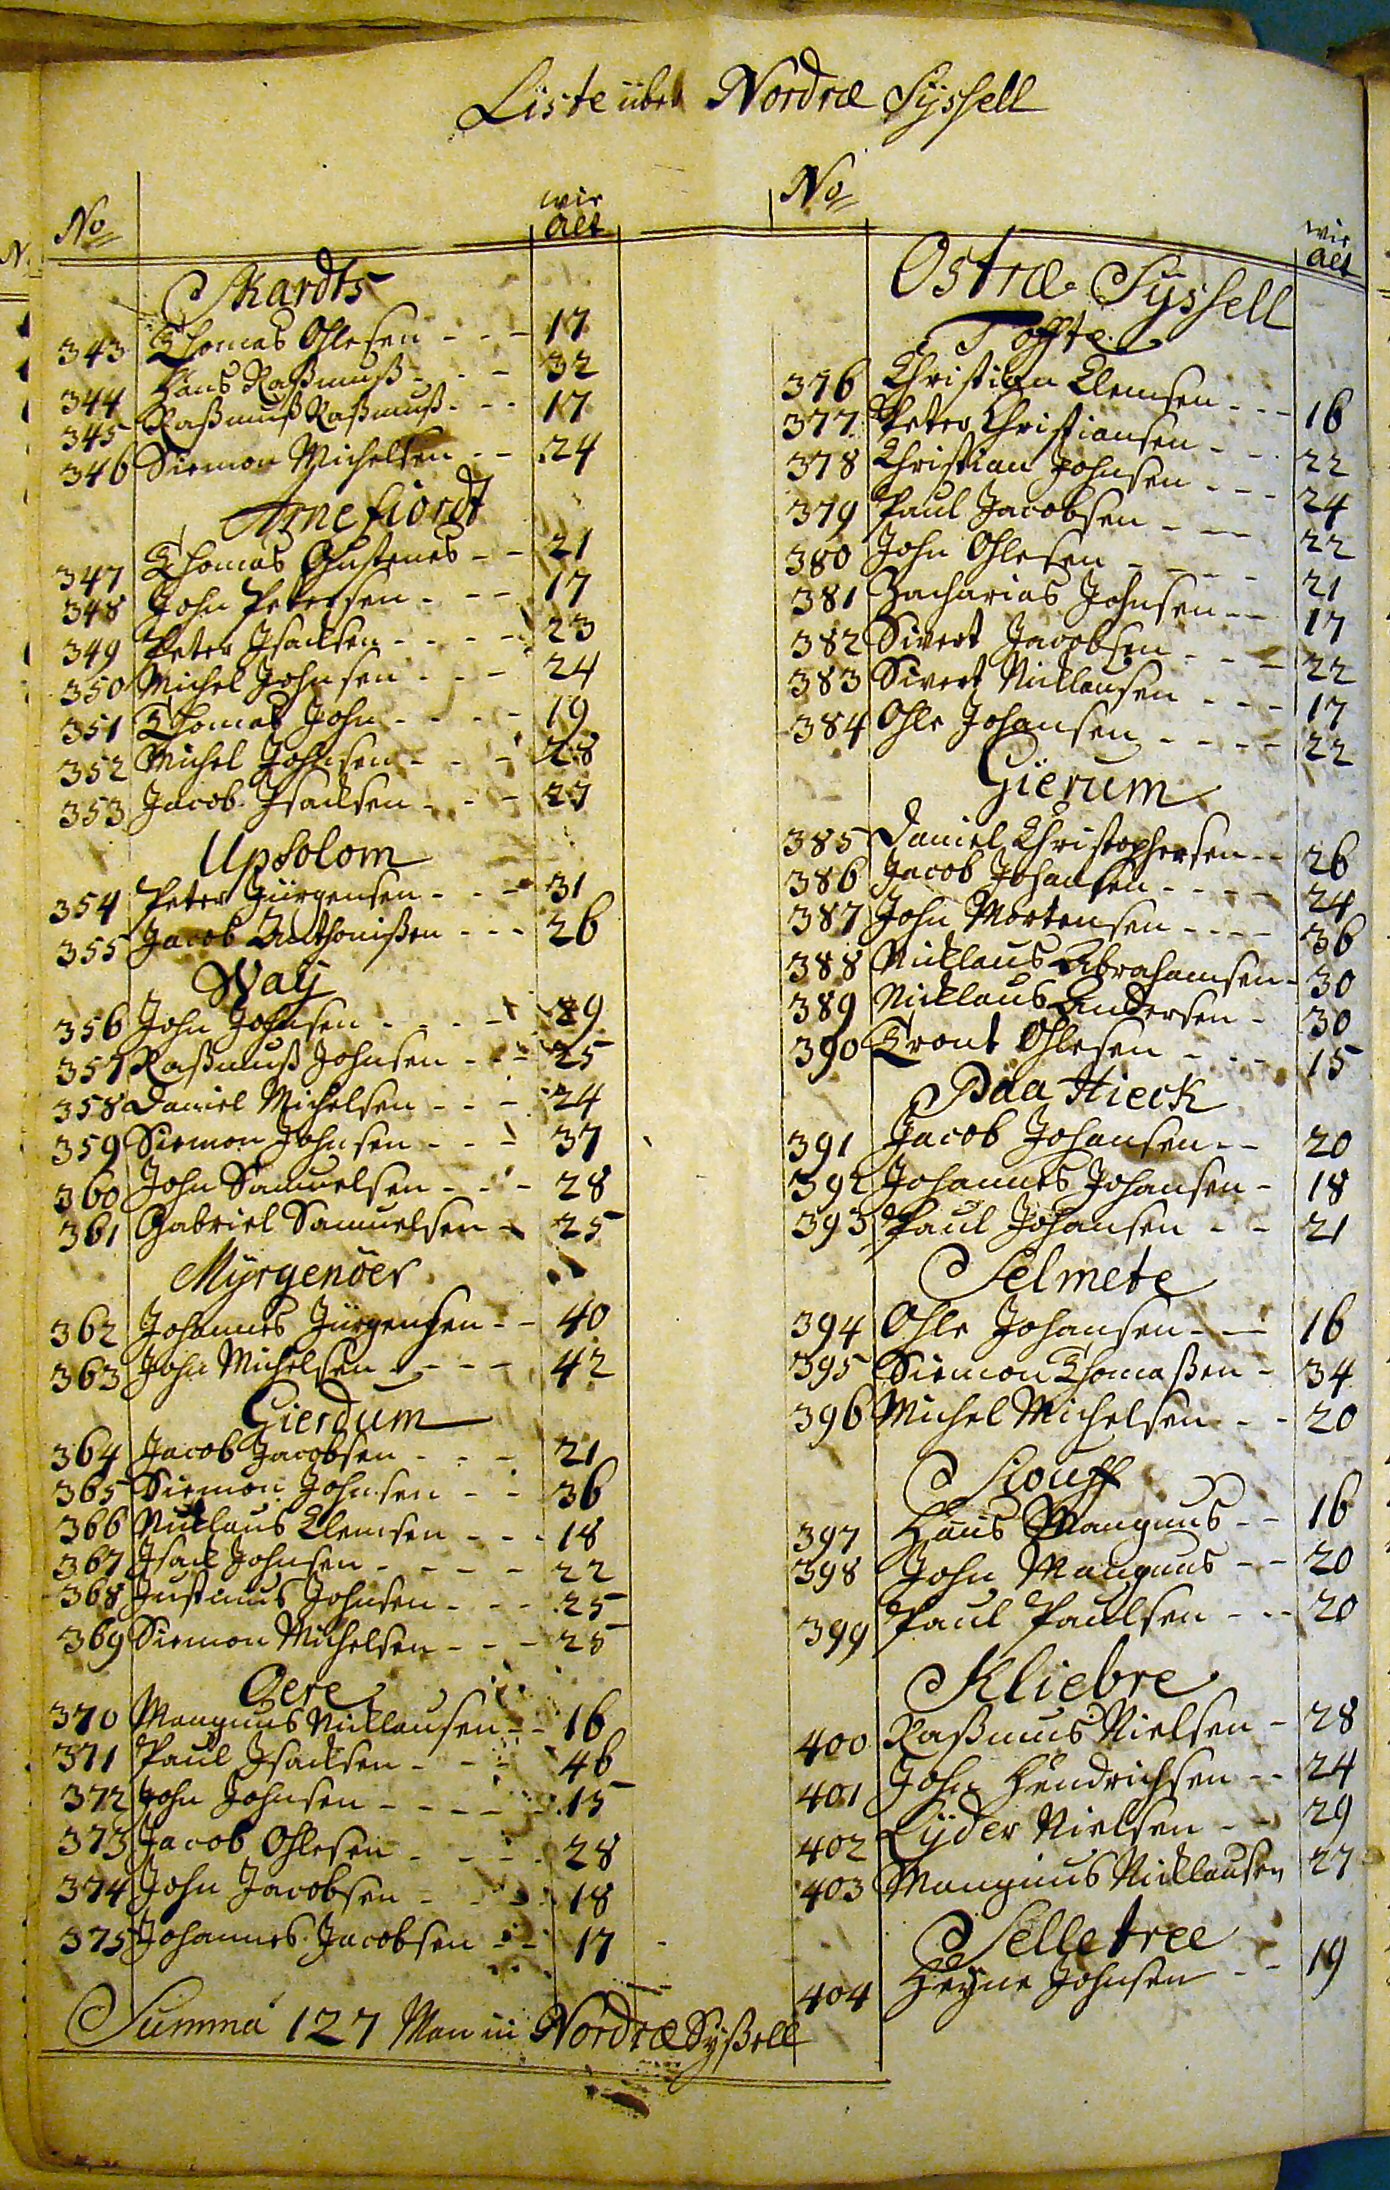 Liste über Nordræ Sÿssell
No
wie alt
Skardts
343 Thomas Ohlesen - - - 17
344 Hans Raßmuß - - - 32
345 Raßmuß Raßmuß - - - 17
346 Siemon Michelsen - - 24
Arnefiordt
347 Thomas - - 21
348 John Petersen - - - 17
349 Peter Isacksen - - - - 23
350 Michel Johnsen - - - 24
351 Thomas John - - - - 19
352 Michel Johnsen - - - 28
353 Jacob Isacksen - - - 27
Upsolom
354 Peter Jürgensen - - - 31
355 Jacob Anthonißen - - - 26
Waÿ
356 John Johnsen - - - - 29
357 Raßmuß Johnsen - - - 25
358 Daniel Michelsen - - - 24
359 Siemon Johnsen - - - 37
360 John Samuelsen - - - 28
361 Gabriel Samuelsen - 25
Mÿrgenöer
362 Johannes Jürgensen - - 40
363 John Michelsen - - - - 42
Gierdum
364 Jacob Jacobsen - - - 21
365 Siemon Johnsen - - 36
366 Nicklaus Clemsen - - - 18
367 Isack Johnsen - - - - 22
368 Justinus Johnsen - - - 25
369 Siemon Michelsen - - - 25
Oere
370 Mangnus Nicklausen - - 16
371 Paul Isacksen - - - 46
372 John Johnsen - - - - - 15
373 Jacob Ohlesen - - - - 28
374 John Jacobsen - - - - 18
375 Johannes Jacobsen - - 17
Summa 127 Man in Nordræ Sÿßell
No
wie alt
Ostræ Sÿssell
Toffte
376 Christian Clemsen - - - 16
377 Peter Christiansen - - - 22
378 Christian Johnsen - - - 24
379 Paul Jacobsen - - - 22
380 John Ohlesen - - - - - 21
381 Zacharias Johnsen - - 17
382 Sivert Jacobsen - - - 22
383 Sivert Nicklausen - - - 17
384 Ohle Johansen - - - - 22
Gierum
385 Daniel Christophersen - - 26
386 Jacob Johansen - - - - 24
387 John Mortensen - - - - 36
388 Nicklaus Abrahamsen - 30
389 Nicklaus Andersen - 30
390 Tront Ohlesen - - - 15
Paa Hieck
391 Jacob Johansen - - 20
392 Johannes Johansen - 18
393 Paul Johansen - - 21
Selmete
394 Ohle Johansen - - 16
395 Siemon Thomaßen - 34
396 Michel Michelsen - - 20
Siouff
397 Hans Mangnus - - 16
398 John Mangnus - - 20
399 Paul Paulsen - - - 20
Kliebre
400 Raßmus Nielsen - 28
401 John Hendrichsen - - 24
402 Lÿder Nielsen - - 29
403 Mangnus Nicklausen 27
Selletree
404 Heÿne Johnsen - - 19